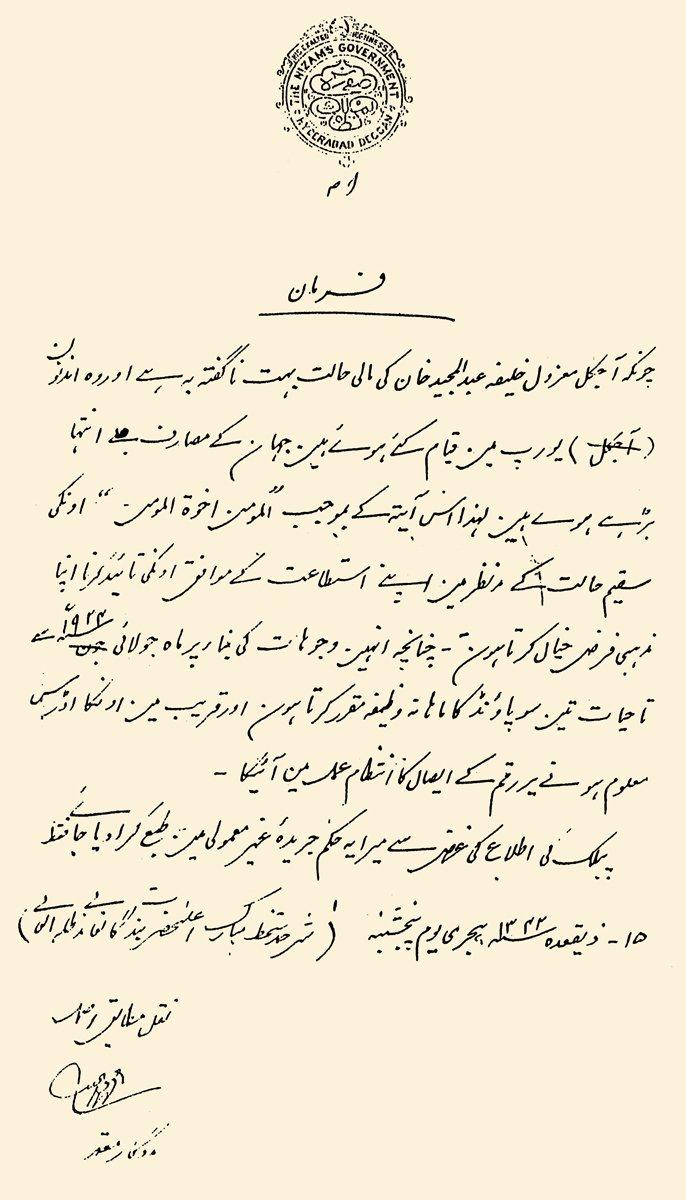 HIS EXALTED HIGHNESS
THE NIZAM'S GOVERNMENT
HYDERABAD DECCAN
فرمان
چونکہ آجکل معزول خلیفہ عبدالمجید خان کی مالی حالت بہت ناگفتہ بہ ہے اور وہ اندنون
(آجکل) یورپ مین قیام کئے ہوئے ہین جہان کے مصارف بے انتہا
بڑہے ہوے ہین لہذا اس آیتہ کے بموجب "المومن اخوة المومن" اونکی
سقیم حالت کے مدنظر مین اپنے استطاعت کے موافق اونکی تائید کرنا اپنا
مذہبی فرض خیال کرتا ہون - چنانچہ انہین وجوہات کی بناء پر ماہ جولائی جون ۱۹۲۴ سے
تاحیات تین سو پاؤنڈ کا ماہانہ وظیفہ مقرر کرتا ہون اور قریب مین اونکا اڈرس
معلوم ہونے پر رقم کے ایصال کا انتظام عمل مین آئیگا -
پبلک کی اطلاع کی غرض سے میرا یہ حکم جریدۂ غیر معمولی مین طبع کرا دیا جائے فقط
۱۵ - ذیقعدہ سنہ ۱۳۴۲ ہجری یوم پنجشنبہ (شرحدستخط مبارک اعلیٰحضرت بندگانعالی مدظلہ العالی)
نقل مطابق اصل